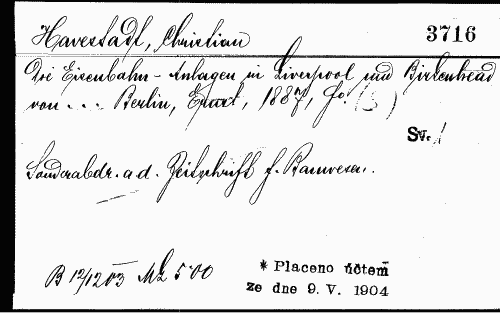 Havestadt, Christian 3716
Die Eisenbahn-Anlagen in Liverpool und Birkenhead
von ... Berlin, Ernst, 1887, Fo. (S)
Sv. 1
Sonderabdr. a. d. Zeitschrift f. Bauwesen.
B 12/12 03 Mk 5·00
* Placeno účtem
ze dne 9. V. 1904